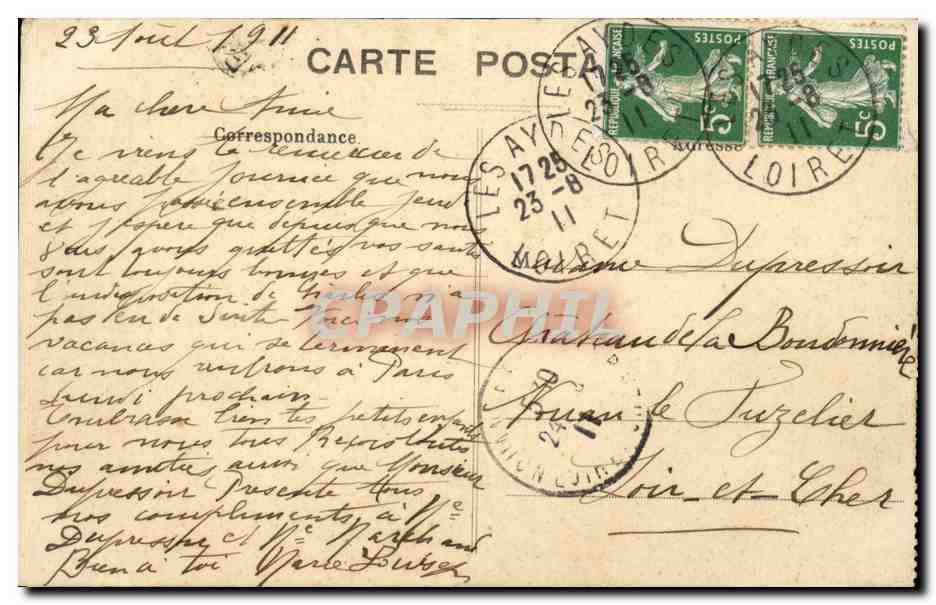 23 Août 1911
CARTE POSTA
Ma chere Amie
Correspondance
Je viens te remercier de
l'agreable journee que nous
avons passé ensemble jeudi
et j'espere que depuis que nous
vous avons quittés vos santés
sont toujours bonnes et que
l'indisposition de n'a
pas eu de suite
vacances qui se terminent
car nous rentrons à Paris
Lundi prochain
Embrasse bien tes petits enfants
pour nous tous Reçois toutes
nos amitiés ainsi que Monsieur
Dupressoir Presente tous
nos compliments à Me
Dupressoir et Me Marchand
Bien à toi Marie Louise
POSTES
REPUBLIQUE FRANÇAISE
5c
POSTES
REPUBLIQUE FRANÇAISE
5c
LES AYDES
17 25
23 -8
11
LOIRET
LES AYDES
17 25
23 -8
11
LOIRET
17 25
-8
11
LOIRET
Adresse
Madame Dupressoir
Chateau de la Boudonnière
Nouan le Fuzelier
Loir-et-Cher
24
11
CPAPHIL